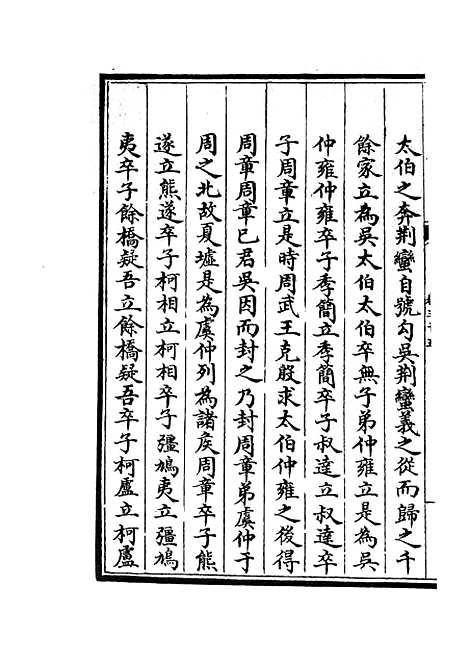 太伯之奔荆蠻自號勾吳荆蠻義之從而歸之千
餘家立為吳太伯太伯卒無子弟仲雍立是為吳
仲雍仲雍卒子季簡立季簡卒子叔達立叔達卒
子周章立是時周武王克殷求太伯仲雍之後得
周章周章已君吳因而封之乃封周章弟虞仲于
周之北故夏墟是為虞仲列為諸侯周章卒子熊
遂立熊遂卒子柯相立柯相卒子彊鳩夷立彊鳩
夷卒子餘橋疑吾立餘橋疑吾卒子柯盧立柯盧